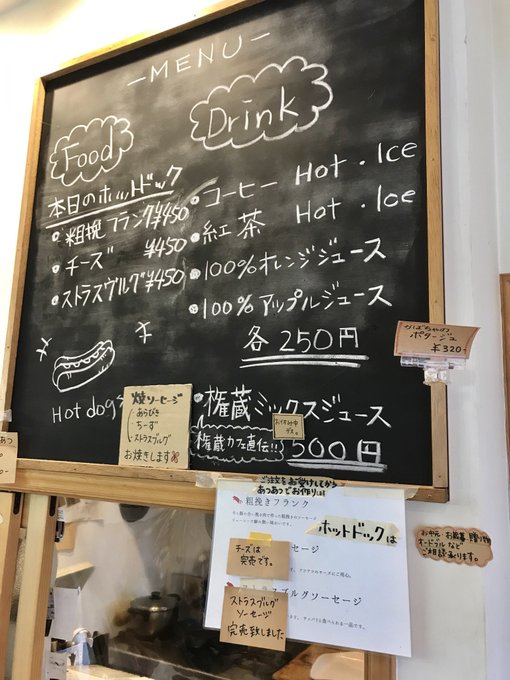 -MENU-
Food
本日のホットドック
粗挽フランク¥450
チーズ ¥450
ストラスブルグ¥450
Hot dog
Drink
コーヒー Hot・Ice
紅茶 Hot・Ice
100%オレンジジュース
100%アップルジュース
各250円
権蔵ミックスジュース
お休み中
デス。
権蔵カフェ直伝!!
500円
焼ソーセージ
あらびき
ちーず
ストラスブルグ
お焼きします
かぼちゃの
ポタージュ
¥320
ご注文をお受けしてから
あつあつでお作り
粗挽きフランク
ホットドックは
チーズは
完売です。
ソーセージ
ストラスブルグ
ソーセージ
完売致しました
スブルグソーセージ
お中元 お歳暮 贈り物
オードブルなど
ご相談承ります。